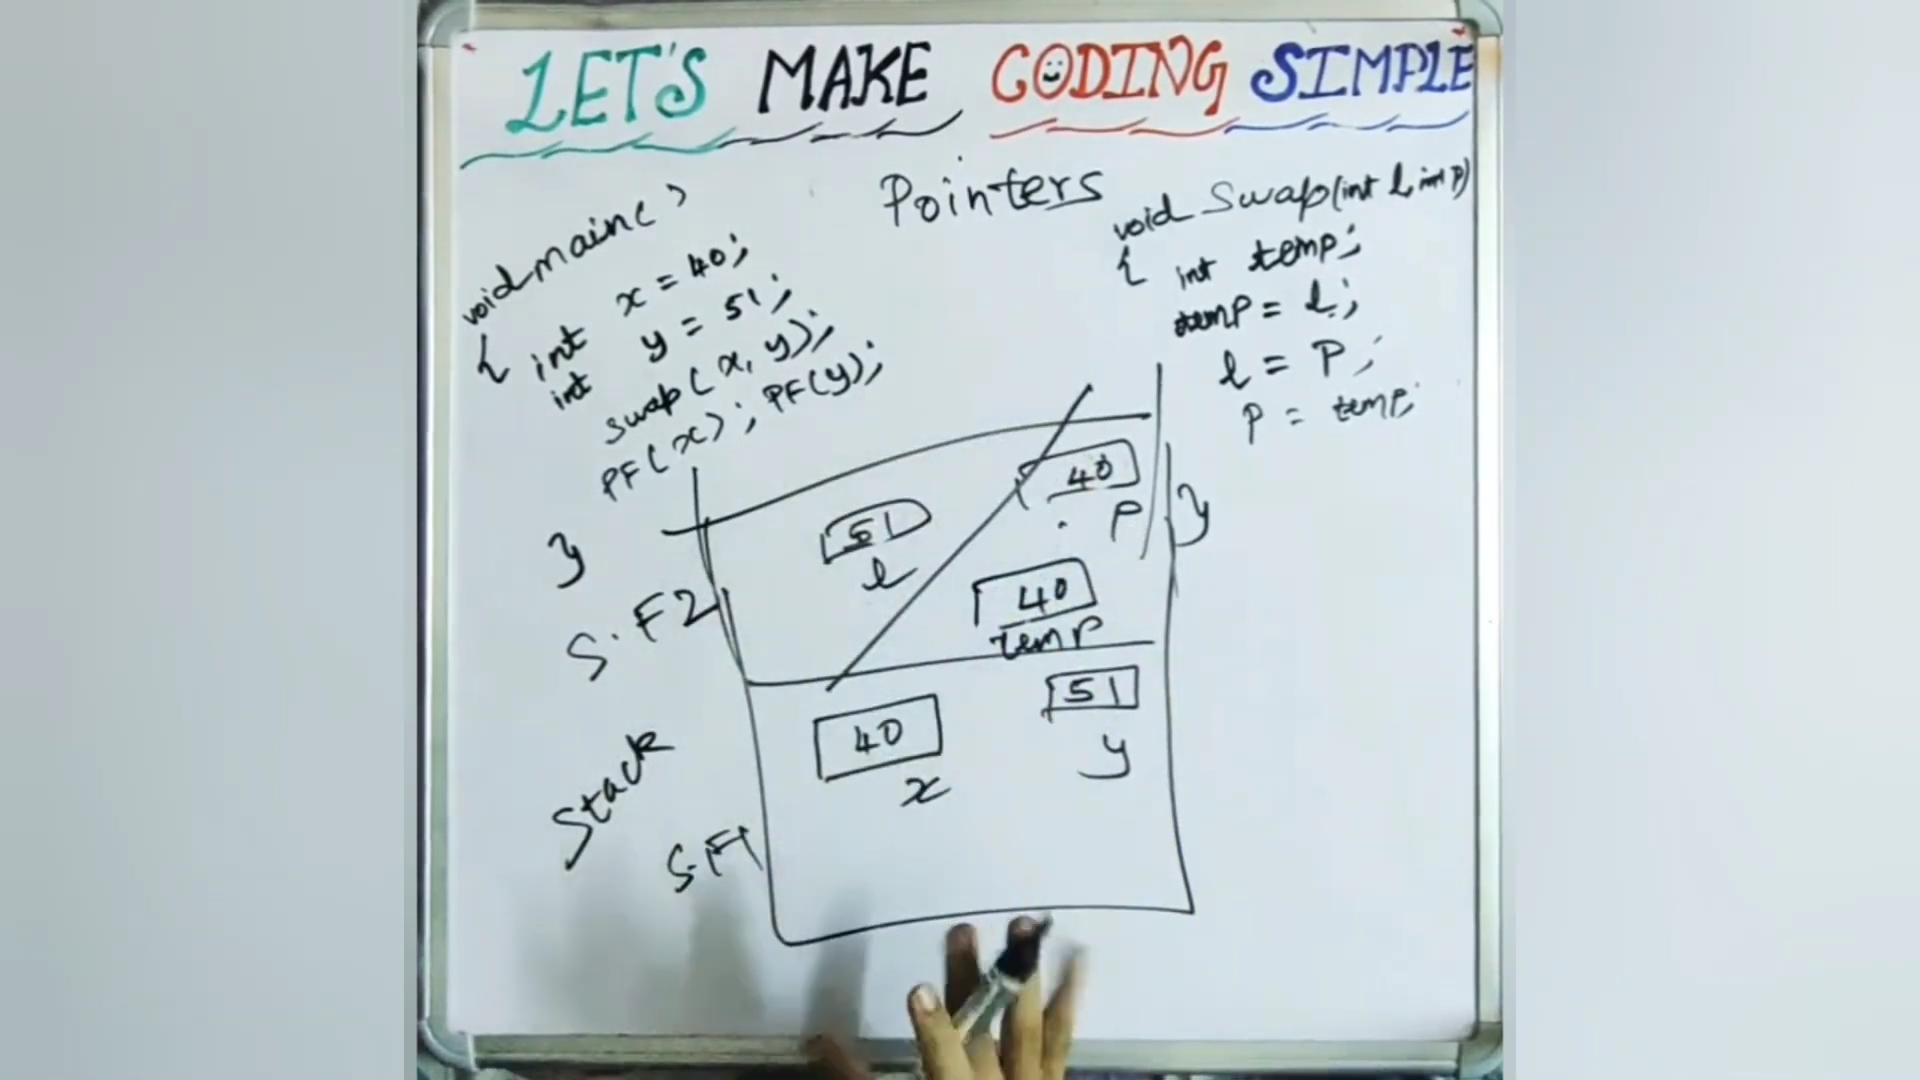 LET'S MAKE CODING SIMPLE
Pointers
void main( )
{ int x = 40;
int y = 51;
swap( x, y);
PF(x); PF(y);
}
void Swap(int l, int P)
{ int temp;
temp = l;
l = P;
P = temp;
}
S.F2
51
l
40
P
40
temp
Stack
S.F1
40
x
51
y